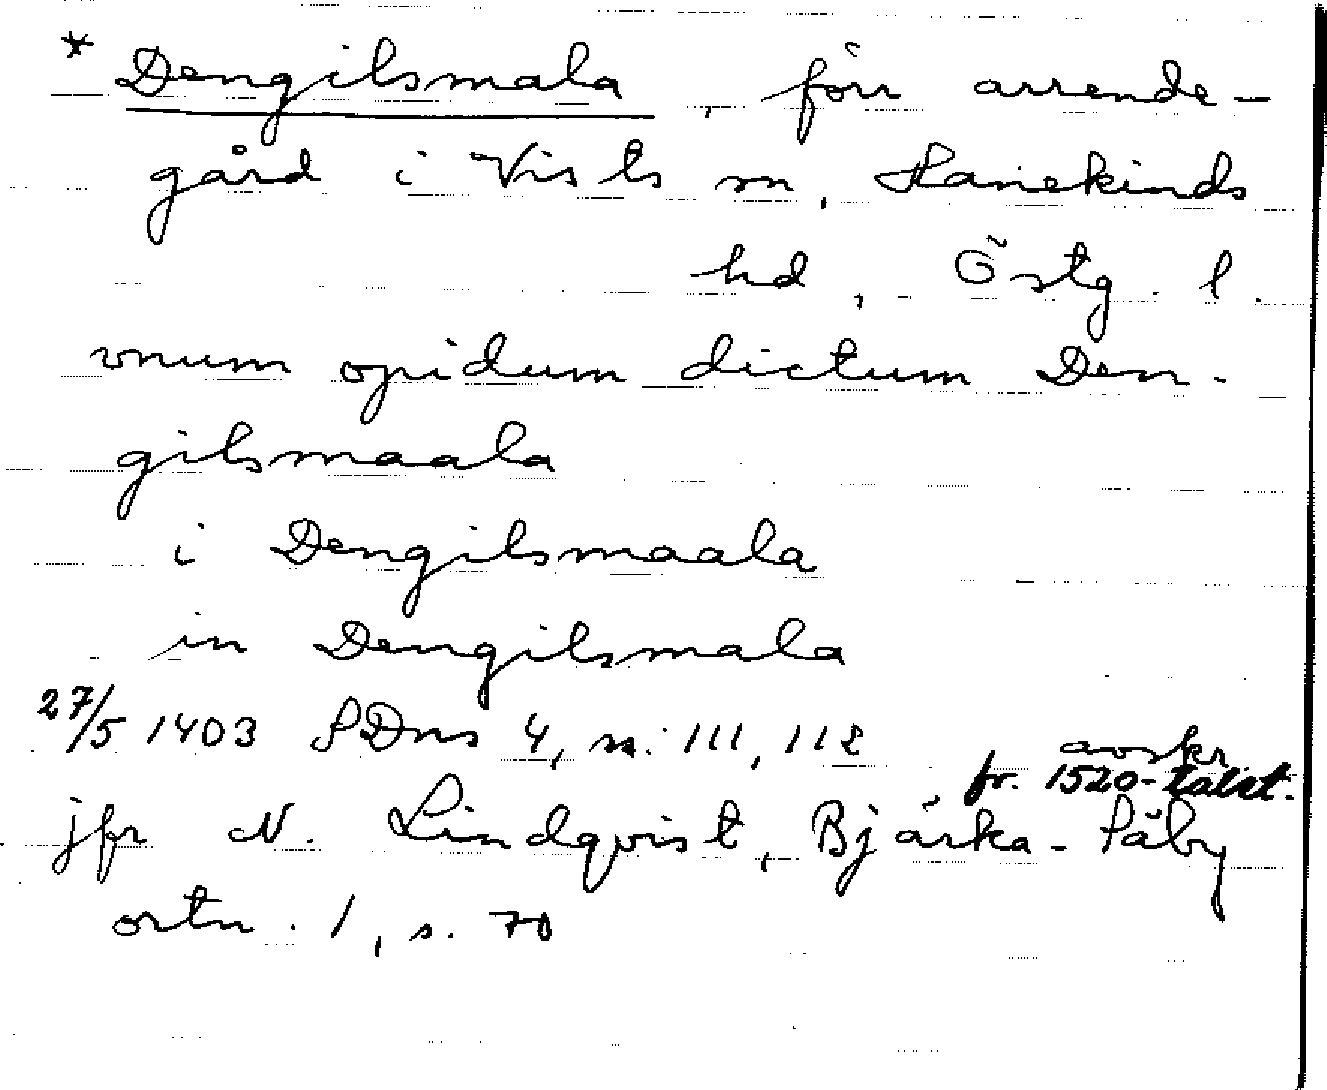 * Dengilsmala, förr arrende-
gård i Vists sn, Hanekinds
hd, Östg. l.
vnum opidum dictum Den-
gilsmaala
i Dengilsmaala
in Dengilsmala
27/5 1403 SDns 4, s. 111, 112 avskr
fr. 1520-talet.
jfr N. Lindqvist, Bjärka-Säby
ortn. 1, s. 70